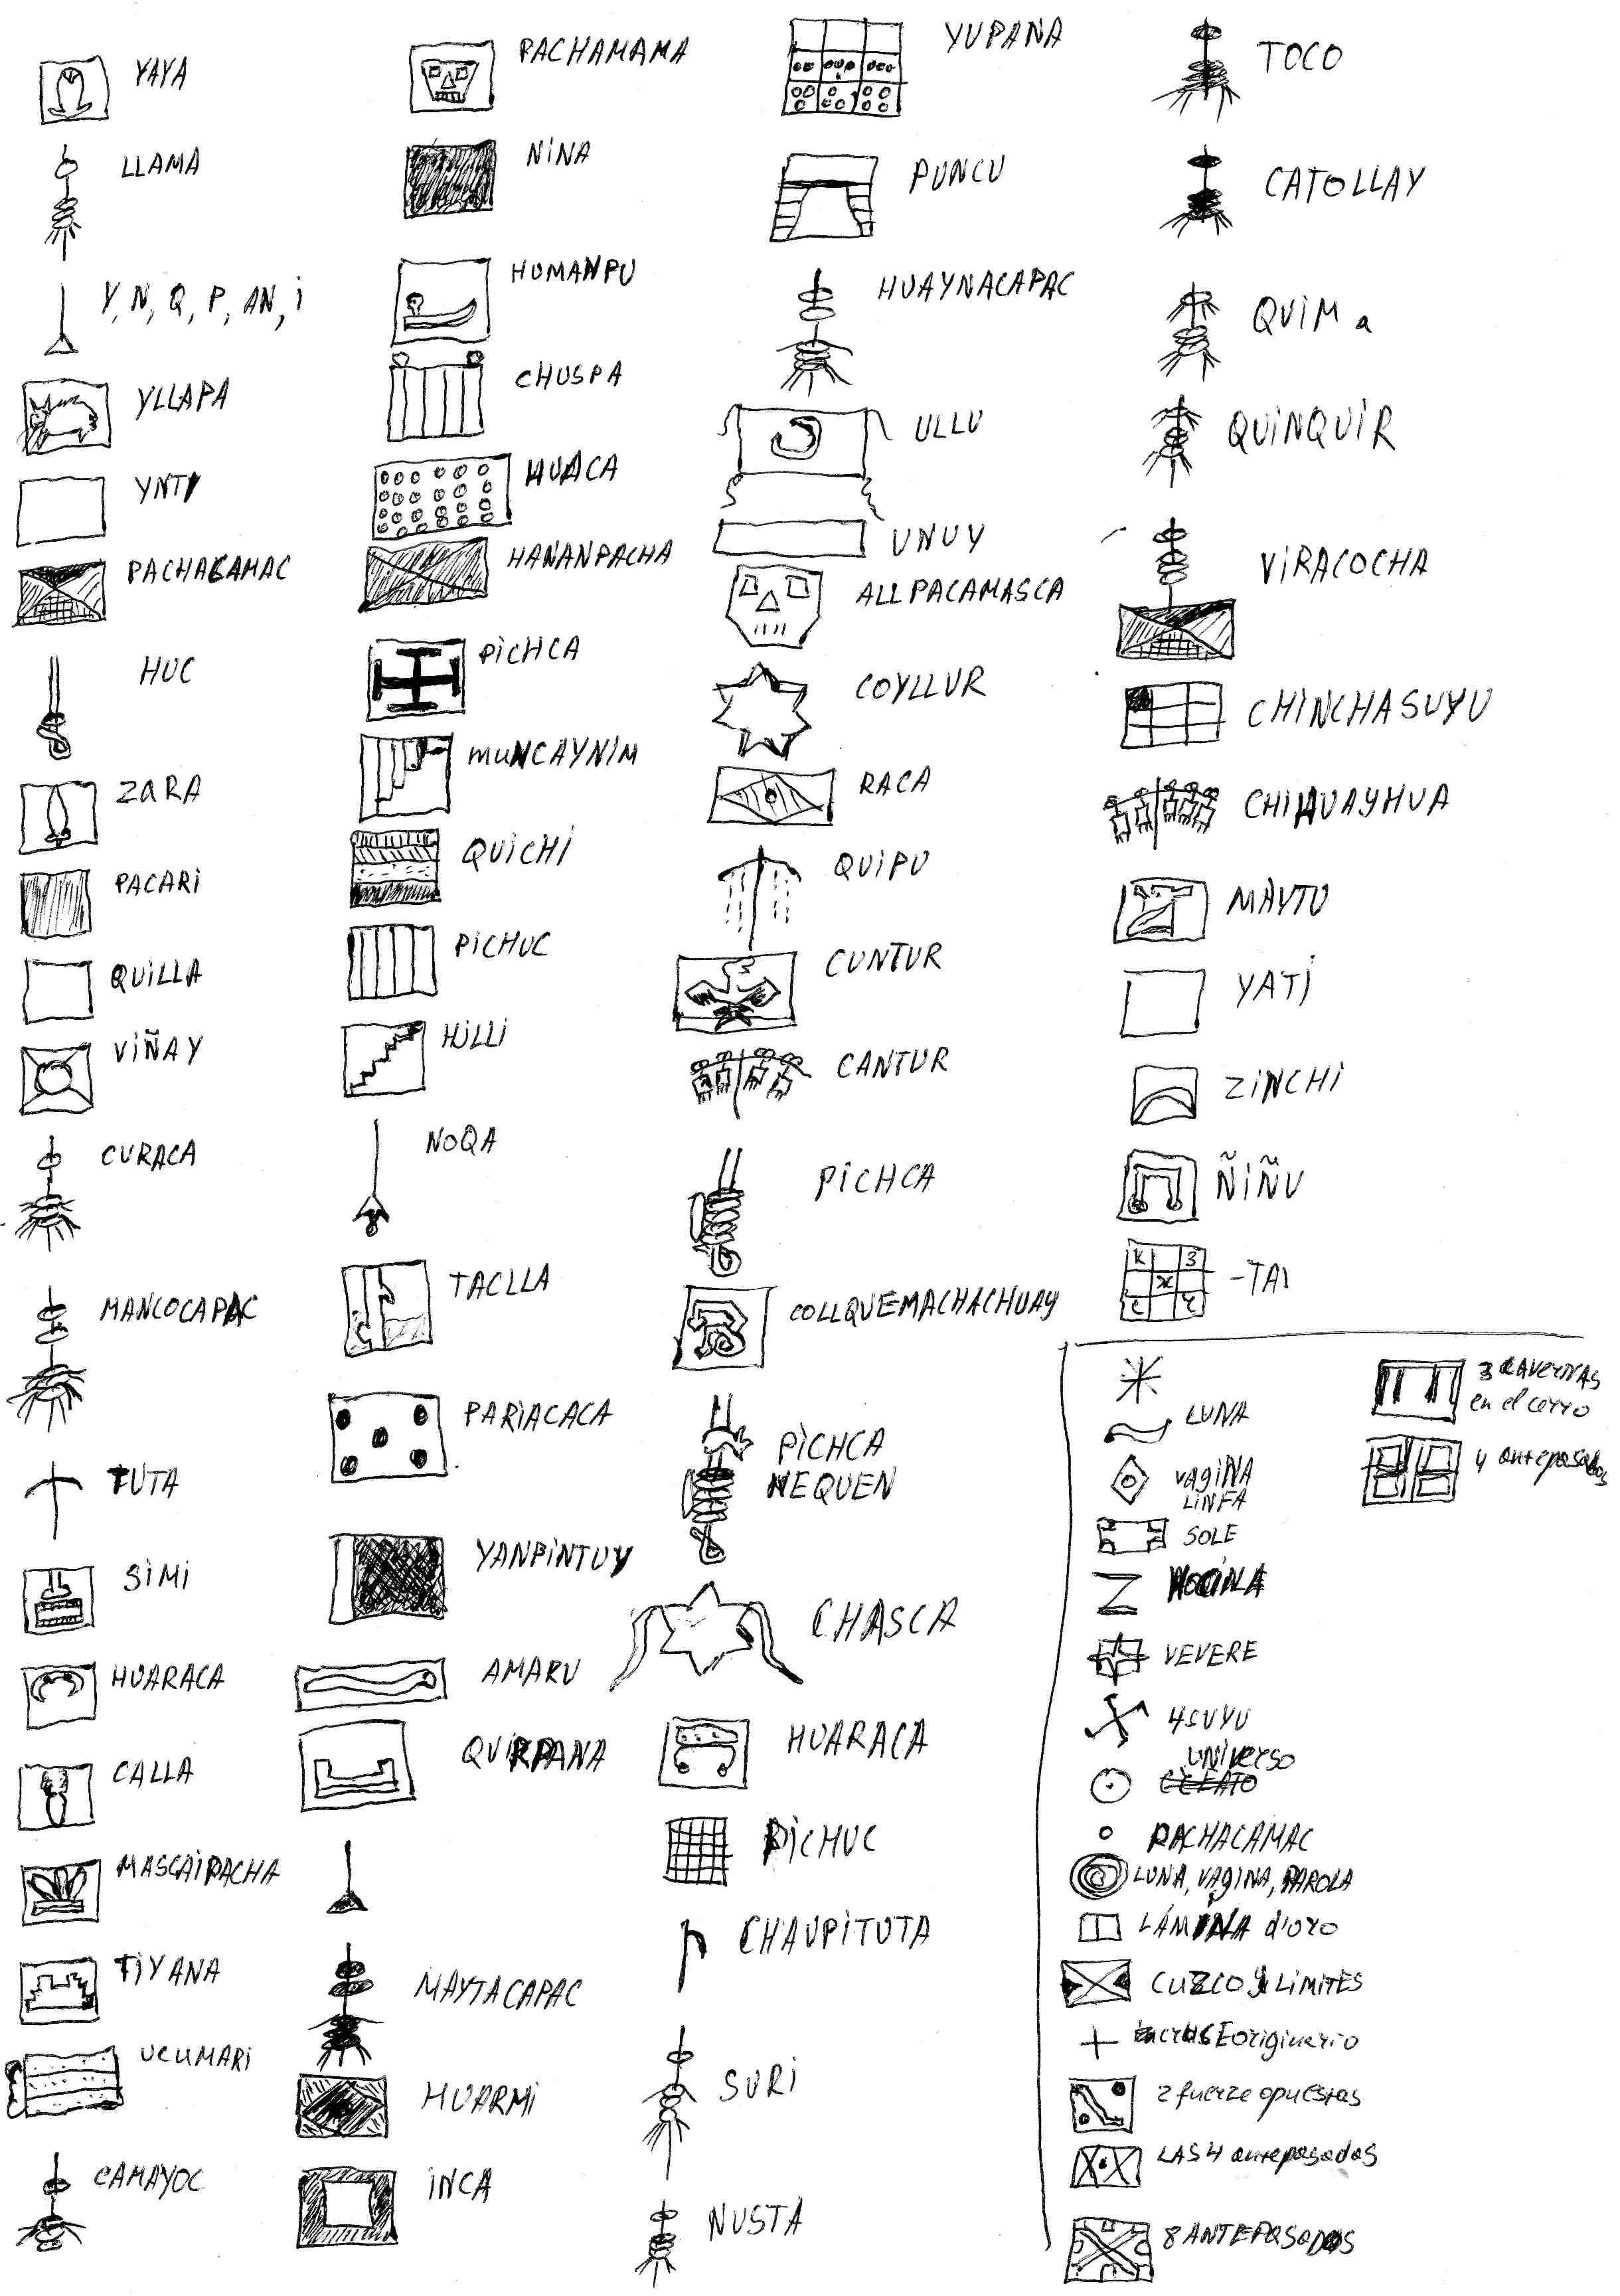 YAYA
LLAMA
Y, N, Q, P, AN, i
YLLAPA
YNTY
PACHACAMAC
HUC
ZaRA
PACARi
QUiLLA
ViÑAY
CURACA
MANCOCAPAC
TUTA
SiMi
HUARACA
CALLA
MASCAiPACHA
TiYANA
UCUMARi
CAMAYOC
PACHAMAMA
NiNA
HUMANPU
CHUSPA
HUACA
HANANPACHA
PiCHCA
MUNCAYNiM
QUiCHi
PiCHUC
HiLLi
NOQA
TACLLA
PARiACACA
YANPiNTUY
AMARU
QUiRPANA
MAYTACAPAC
HUARMi
iNCA
YUPANA
PUNCU
HUAYNACAPAC
ULLU
UNUY
ALLPACAMASCA
COYLLUR
RACA
QUiPU
CUNTUR
CANTUR
PiCHCA
COLLQUEMACHACHUAY
PiCHCA
NEQUEN
CHASCA
HUARACA
PiCHUC
CHAUPiTUTA
SURi
NUSTA
TOCO
CATOLLAY
QUiMa
QUiNQUiR
ViRACOCHA
CHiNCHASUYU
CHiHUAYHUA
MAYTU
YATi
ZiNCHi
ÑiÑU
-TAi
LUNA
VagiNA
LiNFA
SOLE
VEVERE
4SUYU
UNiVerso
PACHACAMAC
LUNA, VAgiNA, PAROLA
LÁMiNA d'oro
CUZCO y LiMiTES
originario
2 fuerze opuestas
LAS 4 antepasados
8 ANTEPASADOS
3 CAVERNAS
en el cerro
4 antepasados